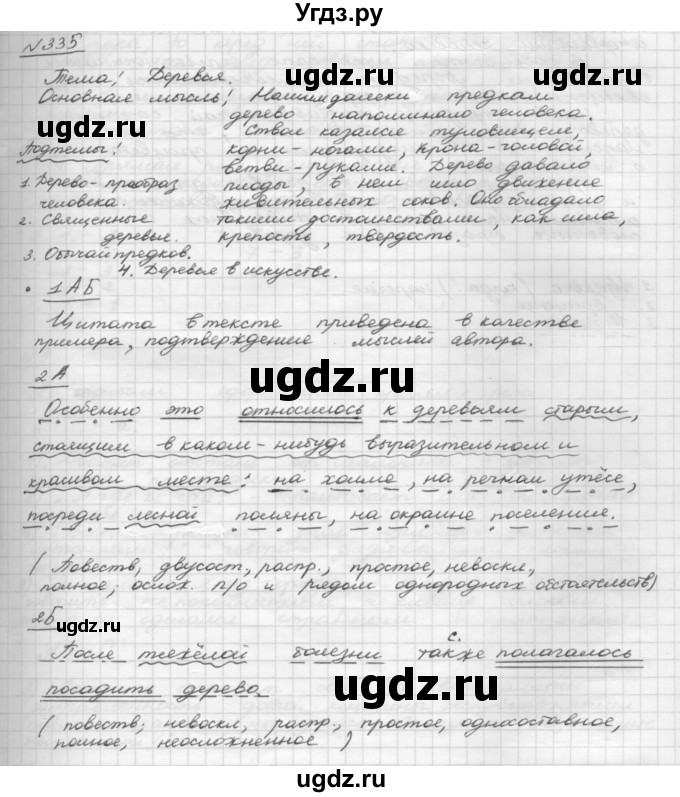 Угдз.ру
№335
Тема! Деревья.
Основная мысль! Нашим далеки предкам
дерево напоминало человека.
Ствол казался туловищем,
Подтемы! корни-ногами, крона-головой,
ветви-руками. Дерево давало
1. Дерево-праобраз плоды, в нем шло движение
человека. живительных соков. Оно обладало
2. Священные такими достоинствами, как сила,
деревья. крепость, твердость.
3. Обычай предков.
4. Деревья в искусстве.
• 1АБ
Цитата в тексте приведена в качестве
примера, подтверждение мыслей автора.
2А
Особенно это относилось к деревьям старым,
стоящим в каком-нибудь выразительном и
красивом месте: на холме, на речном утёсе,
посреди лесной поляны, на окраине поселения.
(Повеств, двусост., распр., простое, невоскл,
полное, ослож. п/о и рядом однородных обстоятельств)
2Б
После тяжёлой болезни также с. полагалось
посадить дерево.
(повеств; невоскл, распр., простое, односоставное,
полное, неосложненное)
ugdz.ru
ugdz.ru
ugdz.ru
ugdz.ru
ugdz.ru
ugdz.ru
ugdz.ru
ugdz.ru
ugdz.ru
ugdz.ru
ugdz.ru
ugdz.ru